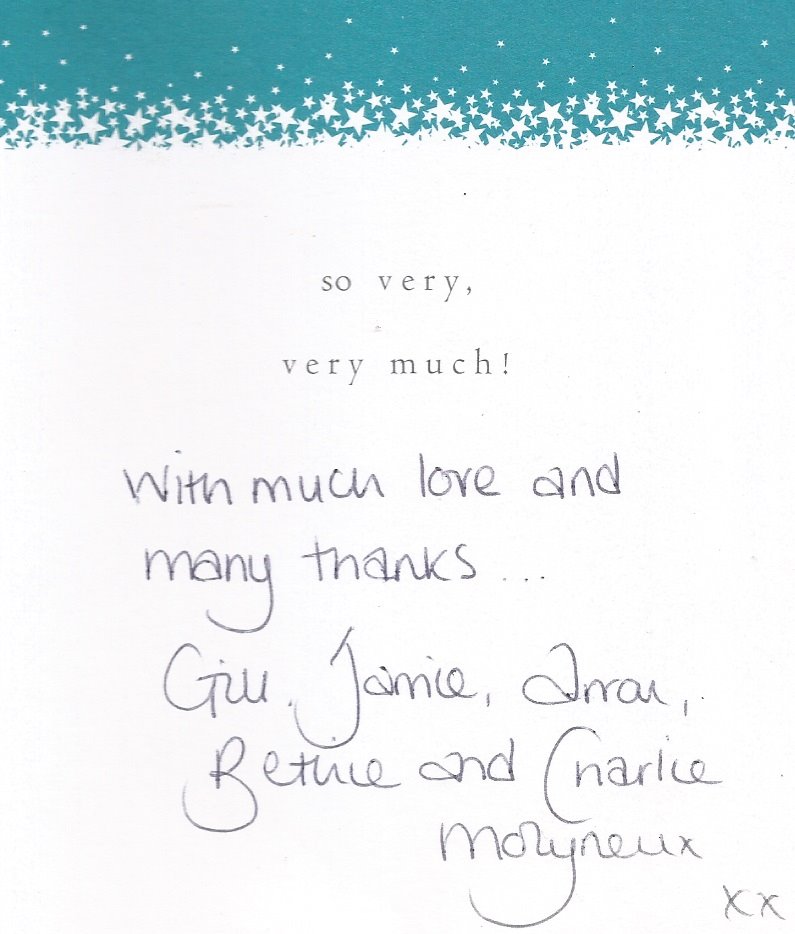 so very,
very much!
With much love and
many thanks...
Gill, Jamie, Arran,
Bethie and Charlie
Molyneux
xx